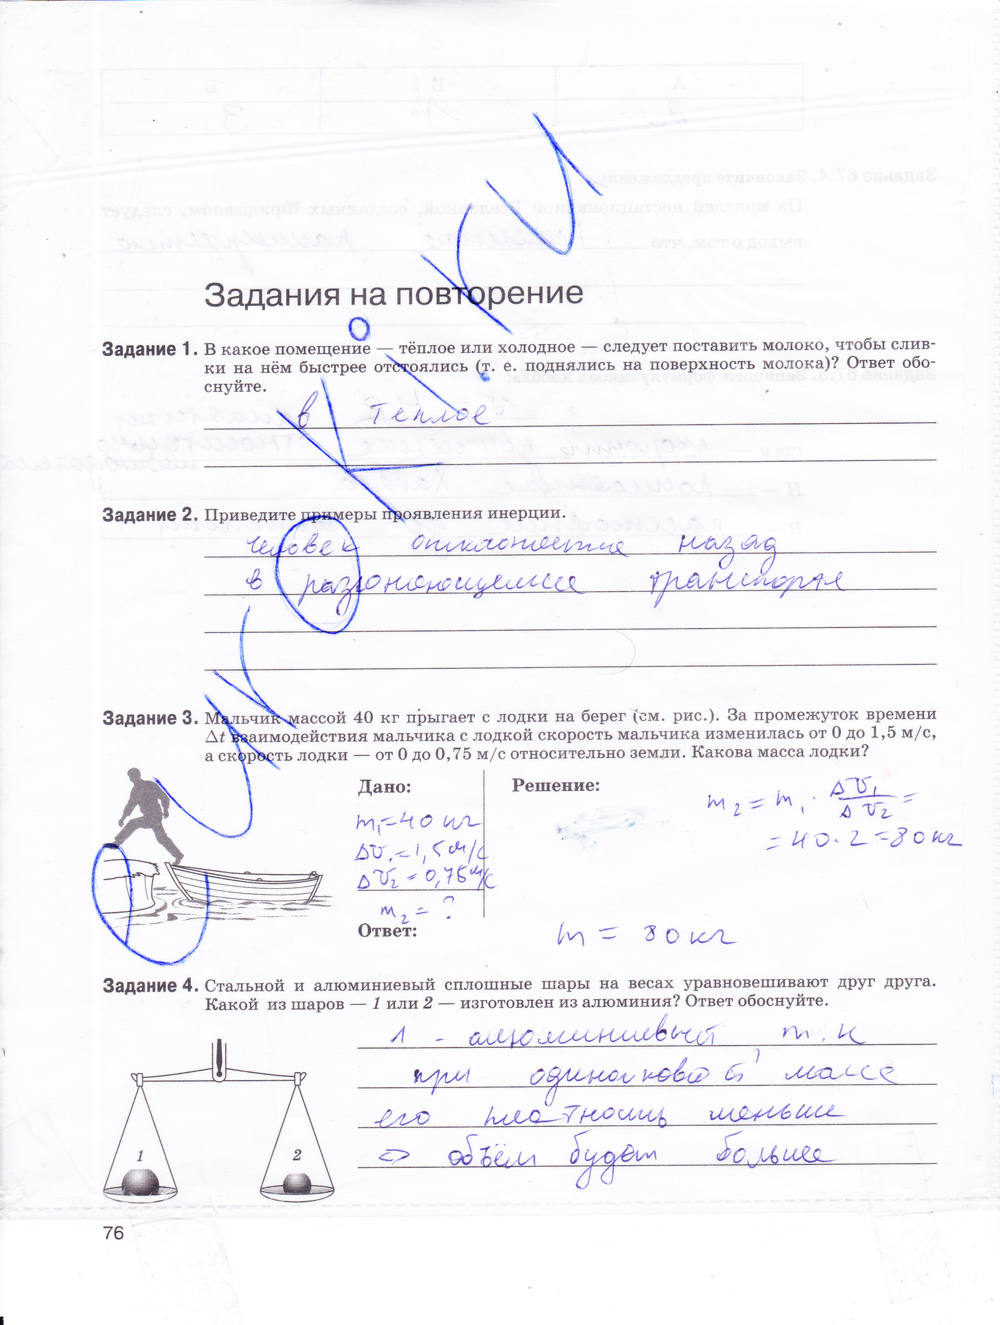 Задания на повторение
Задание 1. В какое помещение — тёплое или холодное — следует поставить молоко, чтобы слив-
ки на нём быстрее отстоялись (т. е. поднялись на поверхность молока)? Ответ обо-
снуйте.
в теплое
Задание 2. Приведите примеры проявления инерции.
Человек отклонение назад
в разгоняющемся транспорте
Задание 3. Мальчик массой 40 кг прыгает с лодки на берег (см. рис.). За промежуток времени
Δt взаимодействия мальчика с лодкой скорость мальчика изменилась от 0 до 1,5 м/с,
а скорость лодки — от 0 до 0,75 м/с относительно земли. Какова масса лодки?
Дано:
m₁=40 кг
Δv₁=1,5 м/с
Δv₂=0,75 м/с
m₂=?
Решение:
m₂ = m₁ · Δv₁/Δv₂ =
= 40·2=80 кг
Ответ:
m = 80 кг
Задание 4. Стальной и алюминиевый сплошные шары на весах уравновешивают друг друга.
Какой из шаров — 1 или 2 — изготовлен из алюминия? Ответ обоснуйте.
1 - алюминиевый т.к
при одинаковой массе
его плотность меньше
=> объём будет больше
1
2
76